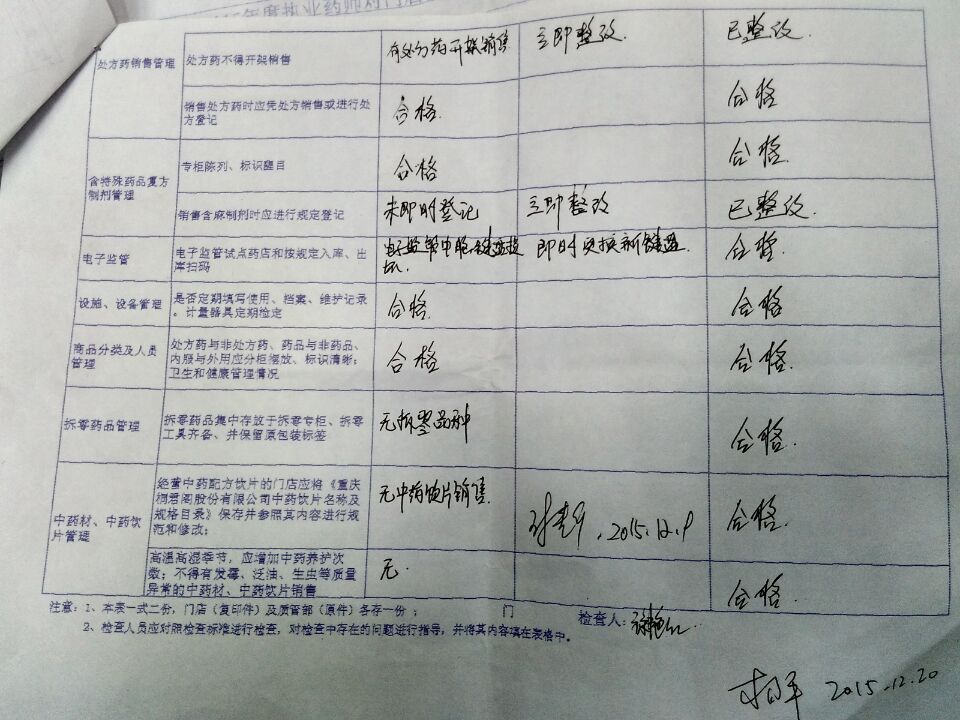 年度执业药师对门店
处方药销售管理
处方药不得开架销售
有处方药开架销售
立即整改.
已整改.
销售处方药时应凭处方销售或进行处
方登记
合格.
合格
含特殊药品复方
制剂管理
专柜陈列、标识醒目
合格
合格.
销售含麻制剂时应进行规定登记
未即时登记
立即整改
已整改.
电子监管
电子监管试点药店和按规定入库、出
库扫码
即时更换新键盘.
合格.
设施、设备管理
是否定期填写使用、档案、维护记录
。计量器具定期检定
合格.
合格
商品分类及人员
管理
处方药与非处方药、药品与非药品、
内服与外用应分柜摆放、标识清晰;
卫生和健康管理情况
合格
合格.
拆零药品管理
拆零药品集中存放于拆零专柜、拆零
工具齐备、并保留原包装标签
无拆零品种
合格.
中药材、中药饮
片管理
经营中药配方饮片的门店应将《重庆
桐君阁股份有限公司中药饮片名称及
规格目录》保存并参照其内容进行规
范和修改;
无中药饮片销售.
2015.12.9
合格.
高温高湿季节,应增加中药养护次
数;不得有发霉、泛油、生虫等质量
异常的中药材、中药饮片销售
无.
合格.
注意:1、本表一式二份,门店(复印件)及质管部(原件)各存一份;
门
检查人:
2、检查人员应对照检查标准进行检查,对检查中存在的问题进行指导,并将其内容填在表格中。
2015.12.20